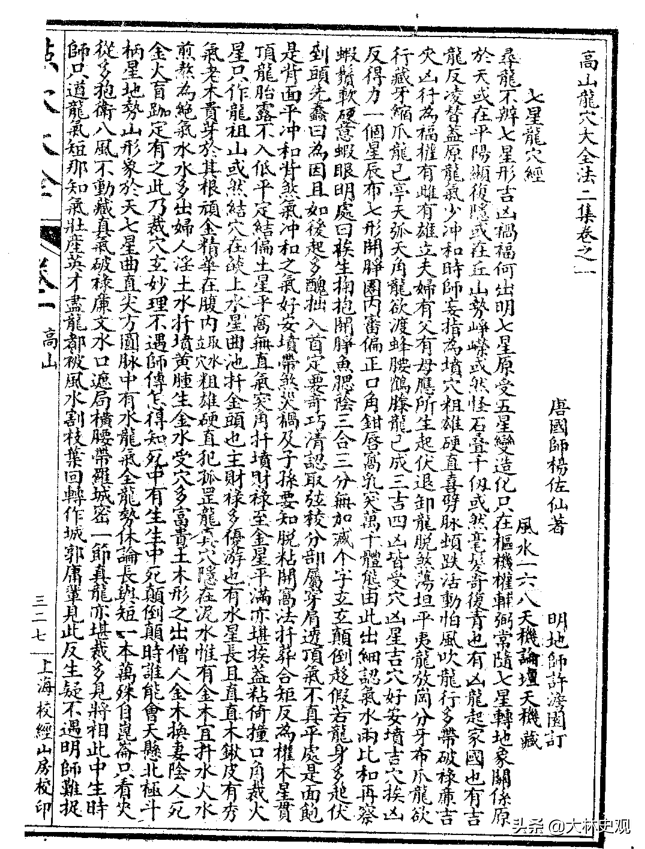 高山龍穴大全法二集卷之一
唐國師楊佐仙著 明地師許澹園訂
七星龍穴經 風水一六八天機論壇天機藏
尋龍不辨七星形吉凶禍福何出明七星原受五星變造化只在樞機權輔弼常隨七星轉地象關係原
於天或在平陽顯復隱或在丘山勢崢嶸或然怪石叠千仭或然毫髮奇復青也有凶龍起家國也有吉
龍反凌替蓋原龍氣少冲和時師妄指為墳穴粗雄硬直喜劈脉頓跌活動怕風吹龍行多帶破祿廉吉
灾凶行為福權有雌有雄立夫婦有父有母應所生起伏退卸龍脫煞蕩坦平夷龍放崗分牙布爪龍欲
行藏牙縮爪龍已亭天弧天角龍欲渡蜂腰鶴膝龍已成三吉四凶皆受穴凶星吉穴好安墳吉穴挨凶
反得力一個星辰布七形開睜圓丙審偏正口角鉗唇窩乳突萬千體態由此出細認氣水兩比和再察
蝦鬚軟硬意蝦眼明處曰挨生掬抱開睜魚腮蔭三合三分無加減个字玄玄顛倒趍假若龍身多起伏
到頭先蠡曰為因且如後起多醜拙入首定要奇巧清認取弦稜分部屬穿肩透頂氣不真平處是面飽
是背面平冲和背煞氣冲和之氣好安墳帶煞災禍及子孫要知脫粘開窩法扦葬合矩反為權木星貫
頂龍胎露不入低平定結偏土星平窩無直氣寔角扦墳財祿至金星平滿亦堪挨葢粘倚撞口角裁火
星只作龍祖山或然結穴在燄上水星曲池扦金頭也主財祿多優游也有水星長且直直木鍬皮有秀
氣老木貴芽於其根頑金精華在腹内 穴 粗雄硬直犯孤罡龍真穴隱在泥水惟有金木宜扦水火水
煎熬為絕氣水水多出婦人淫土水扦墳黄腫生金水受穴多富貴土木形之出僧人金木換妻陰人死
金火盲跏定有之此乃裁穴玄妙理不遇師傅怎得知死中有生生中死顛倒顛時誰能會天縣北極斗
柄星地勢山形象於天七星曲直尖方圓脉中有水龍氣全龍勢休論長與短一本萬殊自崑崙只看火
從多抱衛八風不動藏真氣破祿廉文水口遮局橫腰帶羅城密一節真龍亦堪裁多見將相此中生時
師只道龍氣短那知氣壯産英才盡龍都被風水割枝葉回轉作城郭庸輩見此反生疑不遇明師難捉
穴大全 卷一 高山 三二七 上海校經山房校印
头条@大林史观